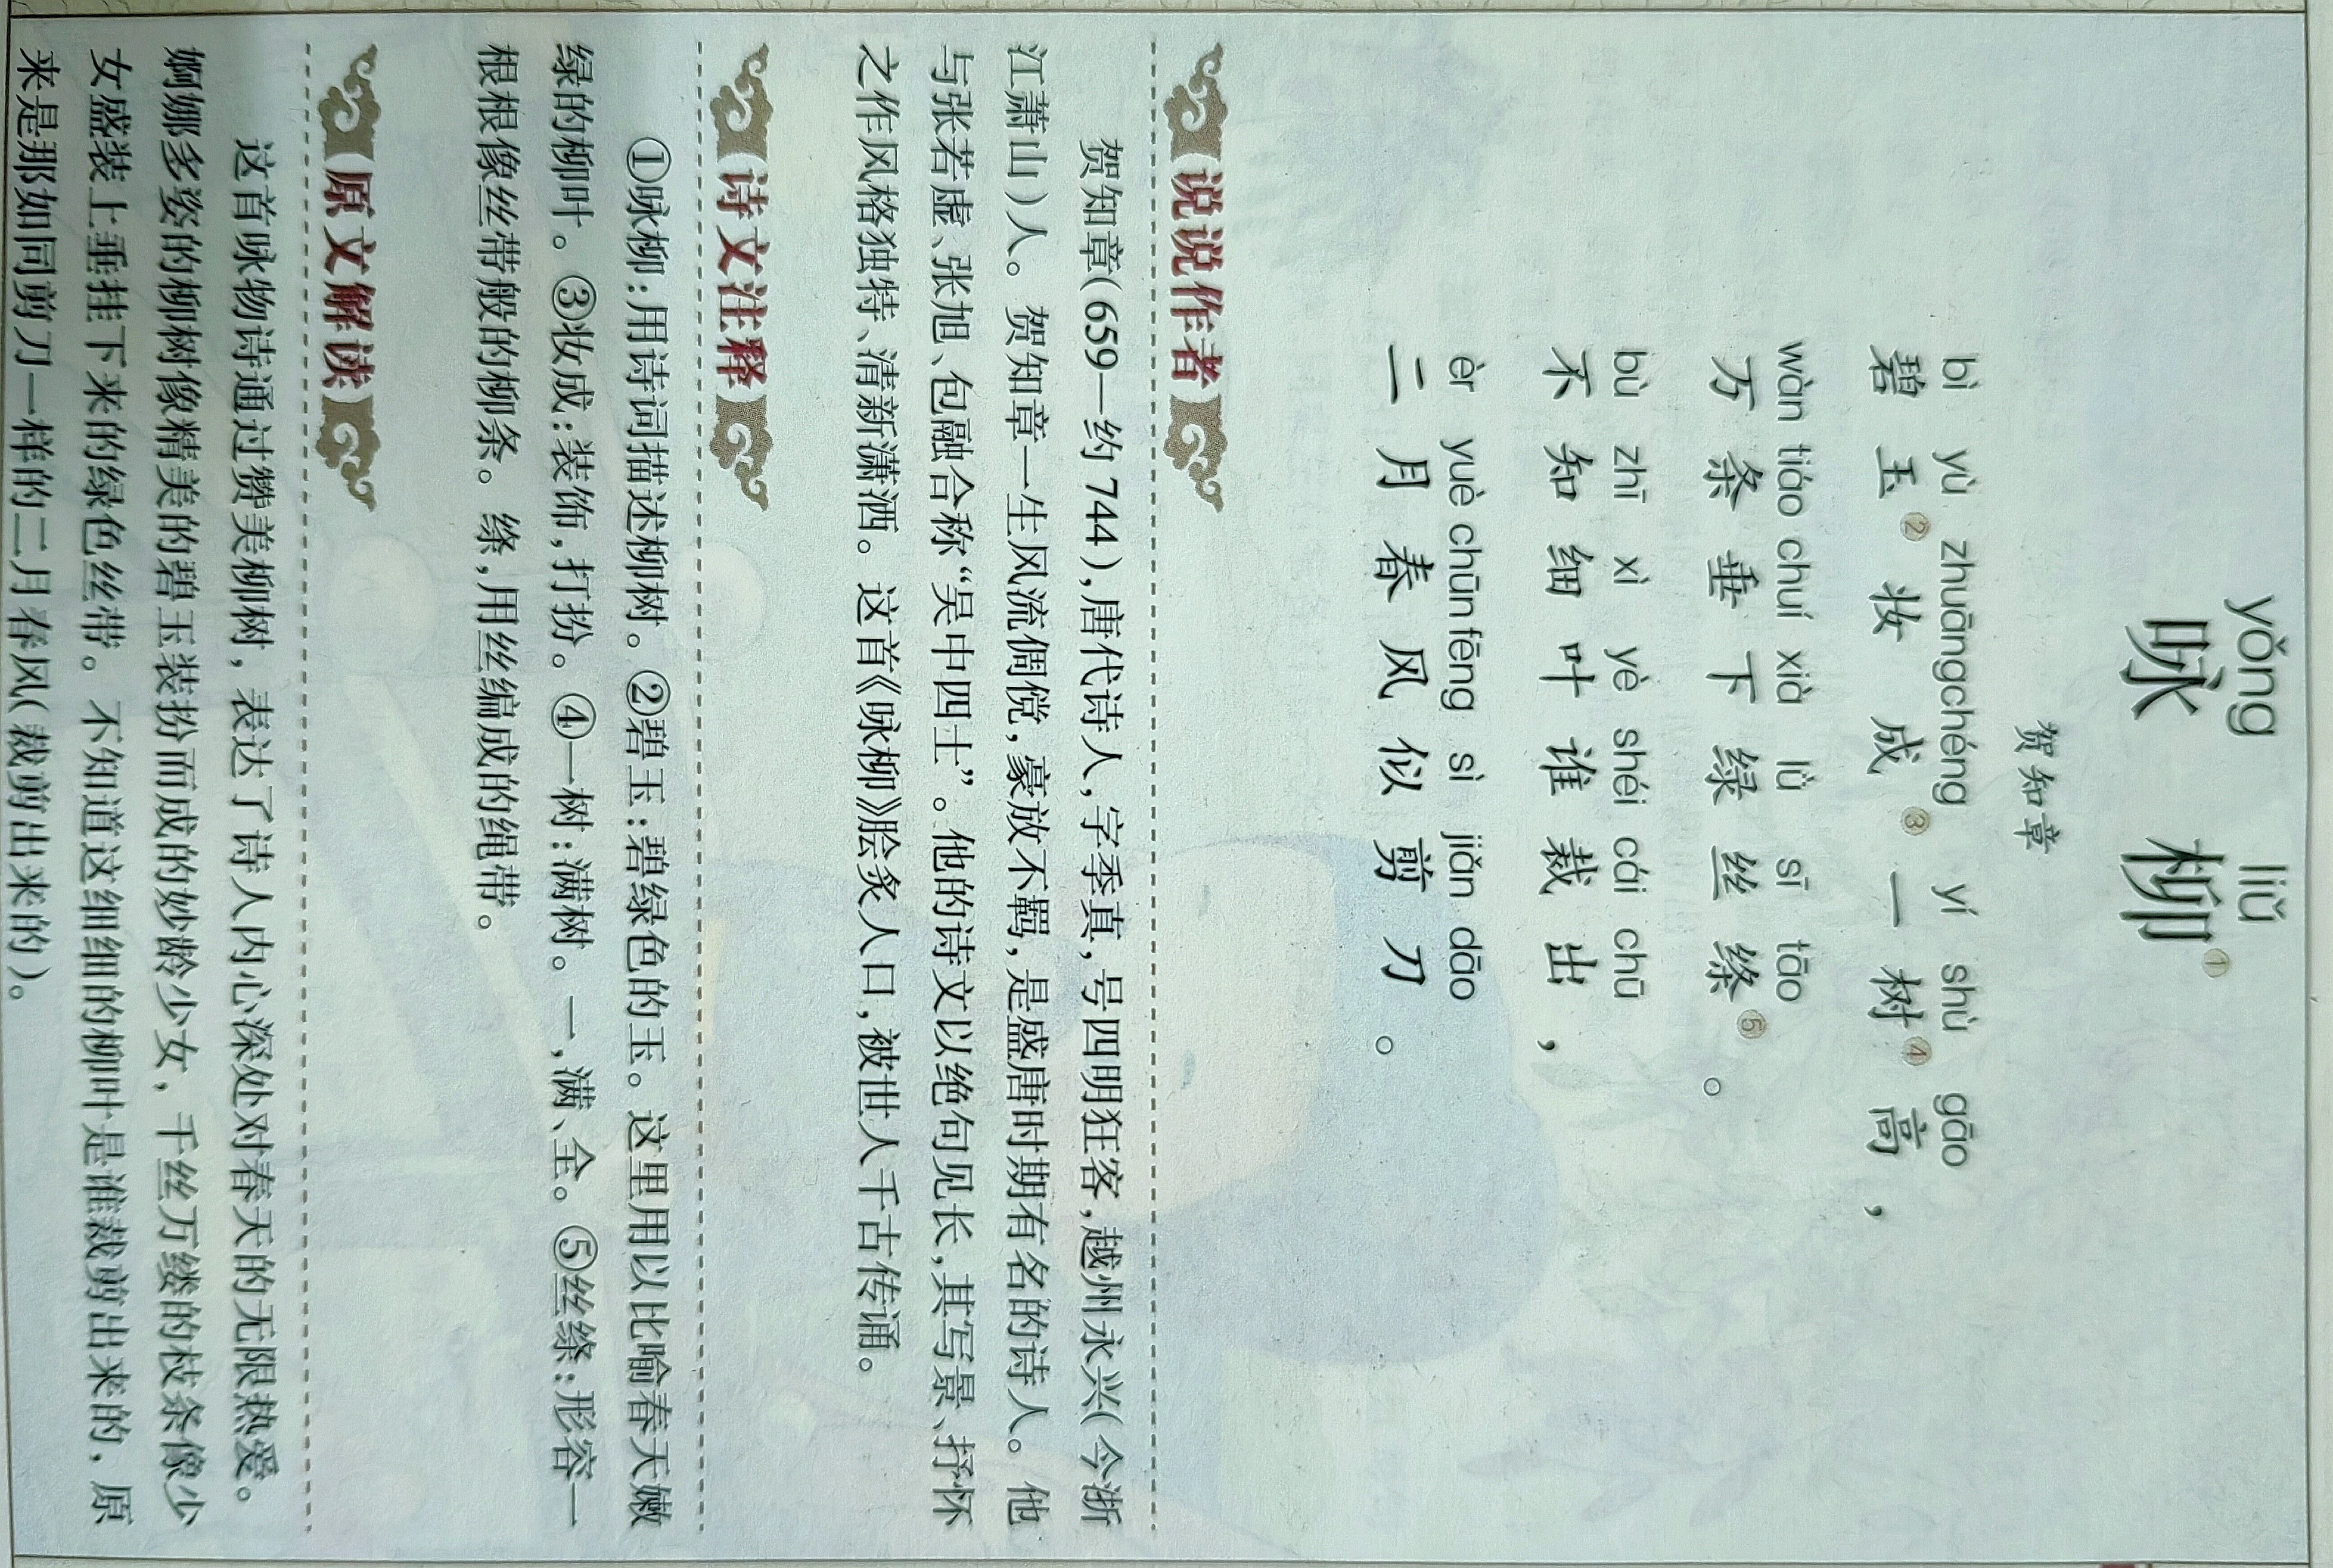 yǒng liǔ
咏柳①
贺知章
bì yù zhuāng chéng yí shù gāo
碧玉②妆成③一树④高，
wàn tiáo chuí xià lǜ sī tāo
万条垂下绿丝绦⑤。
bù zhī xì yè shéi cái chū
不知细叶谁裁出，
èr yuè chūn fēng sì jiǎn dāo
二月春风似剪刀。
说说作者
贺知章(659—约744),唐代诗人,字季真,号四明狂客,越州永兴(今浙
江萧山)人。贺知章一生风流倜傥,豪放不羁,是盛唐时期有名的诗人。他
与张若虚、张旭、包融合称“吴中四士”。他的诗文以绝句见长,其写景、抒怀
之作风格独特、清新潇洒。这首《咏柳》脍炙人口,被世人千古传诵。
诗文注释
①咏柳:用诗词描述柳树。②碧玉:碧绿色的玉。这里用以比喻春天嫩
绿的柳叶。③妆成:装饰,打扮。④一树:满树。一,满、全。⑤丝绦:形容一
根根像丝带般的柳条。绦,用丝编成的绳带。
原文解读
这首咏物诗通过赞美柳树，表达了诗人内心深处对春天的无限热爱。
婀娜多姿的柳树像精美的碧玉装扮而成的妙龄少女，千丝万缕的枝条像少
女盛装上垂挂下来的绿色丝带。不知道这细细的柳叶是谁裁剪出来的，原
来是那如同剪刀一样的二月春风(裁剪出来的)。